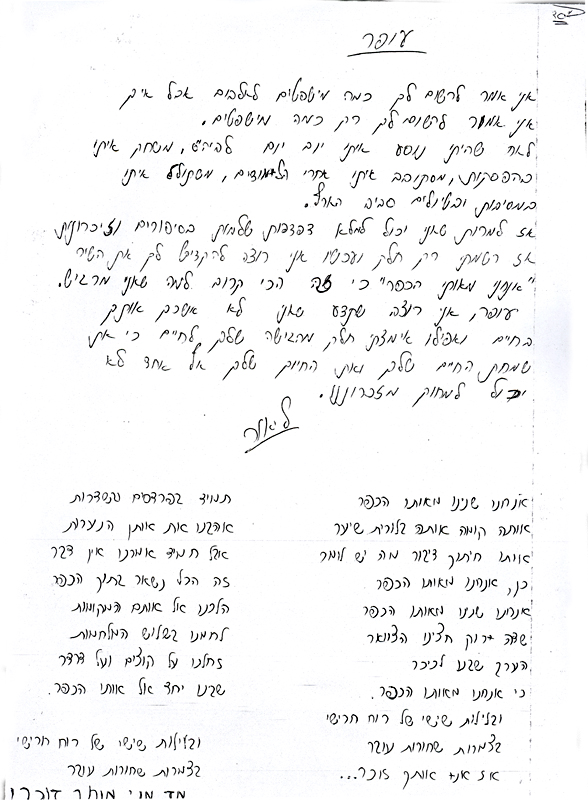 עופר
אני אמר לרשום לך כמה מישפטים לאלבום אבל איך
אני אמור לרשום לך רק כמה מישפטים.
לאח שהיתי נוסע איתי יום יום לביה"ס, משחק איתי
בהפסקות, מסתובב איתי אחרי הלימודים, מסתולל איתי
במסיבות ובטיולים סביב הארץ.
אז למרות שאני יכול למלא דפדפות שלמות בסיפורים וזיכרונות
אז רשמתי רק חלק ועכשיו אני רוצה להקדיש לך את השיר
"אנחנו מאותו הכפר" כי זה הכי קרוב למה שאני מרגיש.
עופר, אני רוצה שתדע שאני לא אשכח אותך
בחיים ואפילו אימצתי חלק מהגישה שלך לחיים כי את
שמחת החיים שלך ואת החיוך שלך אף אחד לא
יכול למחוק מזכרוננו.
ליאור
אנחנו שנינו מאותו הכפר
אותה קומה אותה בלורית שיער
אותו חיתוך דיבור מה יש לומר
כן, אנחנו מאותו הכפר
אנחנו שנינו מאותו הכפר
שדה ירוק חצינו הצוואר
הערב שבנו לכיכר
כי אנחנו מאותו הכפר.
ובלילות שישי של רוח חרישי
בצמרות שחורות עובר
אז אני אותך זוכר...
תמיד בפרדסים ובשדרות
אהבנו את אותן הנערות
אבל תמיד אמרנו אין דבר
זה הכל נשאר בתוך הכפר
הלכנו אל אותם המקומות
לחמנו בשלוש המלחמות
זחלנו על קוצים ועל דרדר
שבנו יחד אל אותו הכפר.
ובלילות שישי של רוח חרישי
בצמרות שחורות עובר